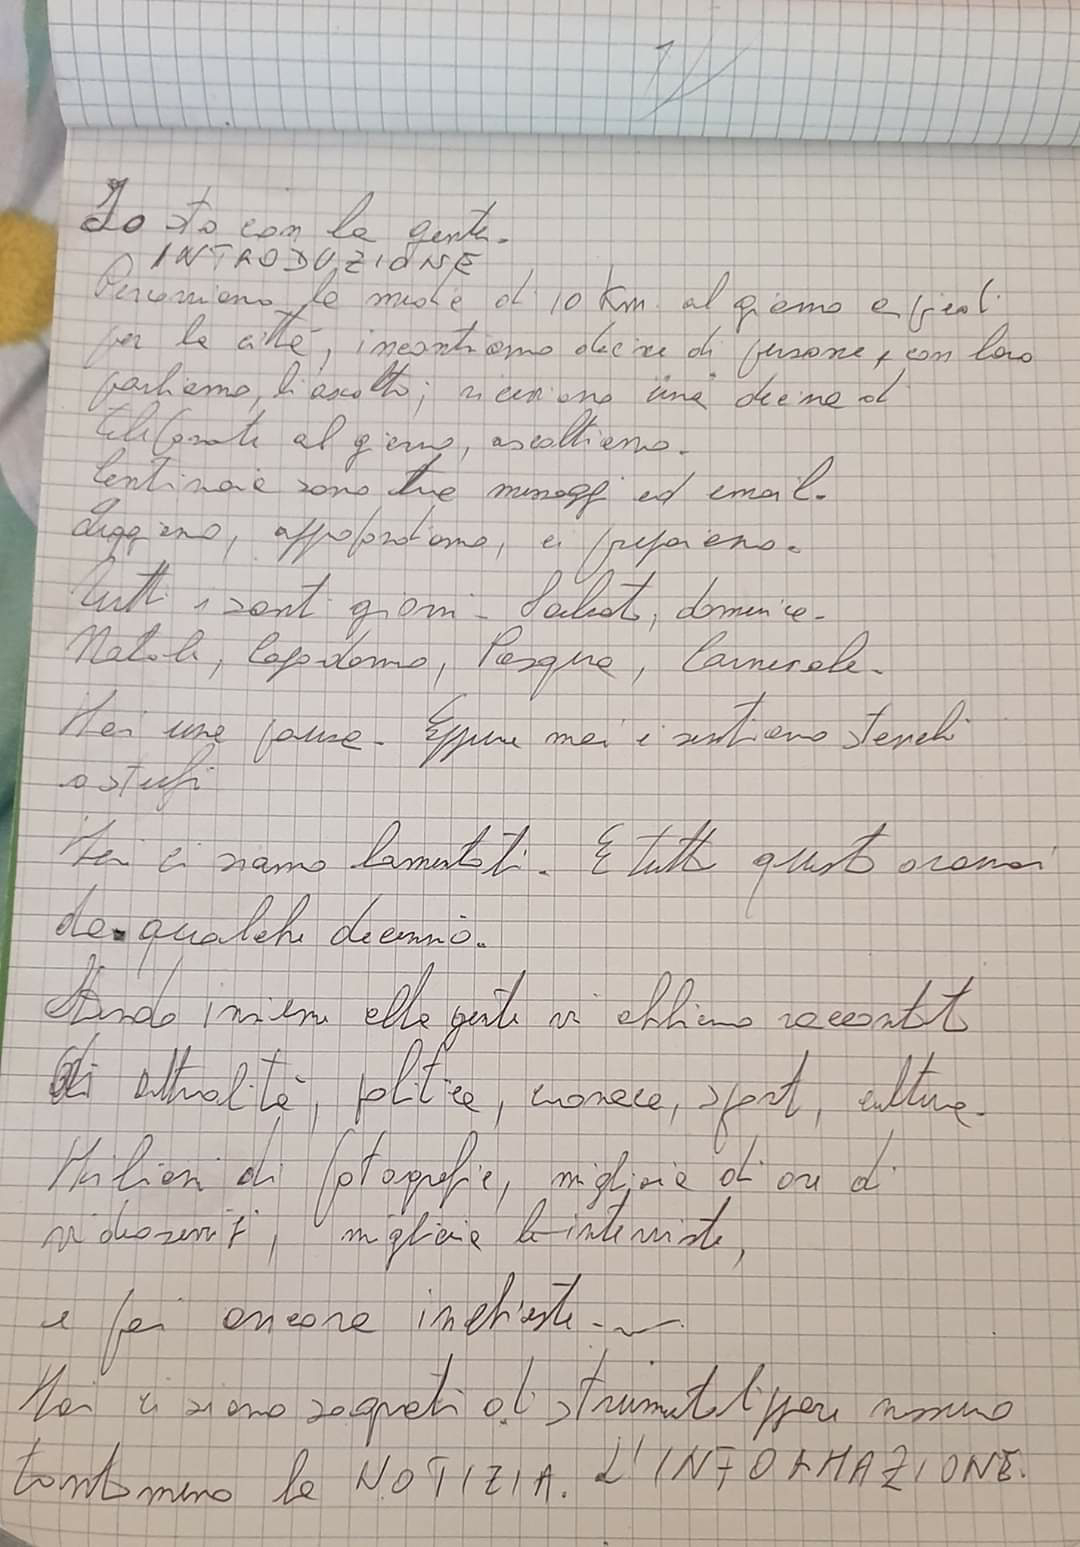 1
Io sto con la gente.
INTRODUZIONE
Percorriamo la media di 10 Km. al giorno a piedi
per la città, incontriamo decine di persone, con loro
parliamo, li ascolto; riceviamo una decina di
telefonate al giorno, ascoltiamo.
Centinaia sono tra messaggi ed email.
Leggiamo, approfondiamo, ci prepariamo.
Tutti i santi giorni. Sabato, domenica.
Natale, Capodanno, Pasqua, Carnevale.
Mai una pausa. Eppure mai ci sentiamo stanchi
o stufi
Mai ci siamo lamentati. E tutto questo oramai
da qualche decennio.
Stando insieme alla gente vi abbiamo raccontato
di attualità, politica, cronaca, sport, cultura.
Milioni di fotografie, migliaia di ore di
videoservizi, migliaia le interviste,
e poi ancora inchieste.
Mai ci siamo sognati di strumentalizzare nessuno
tantomeno la NOTIZIA. L'INFORMAZIONE.